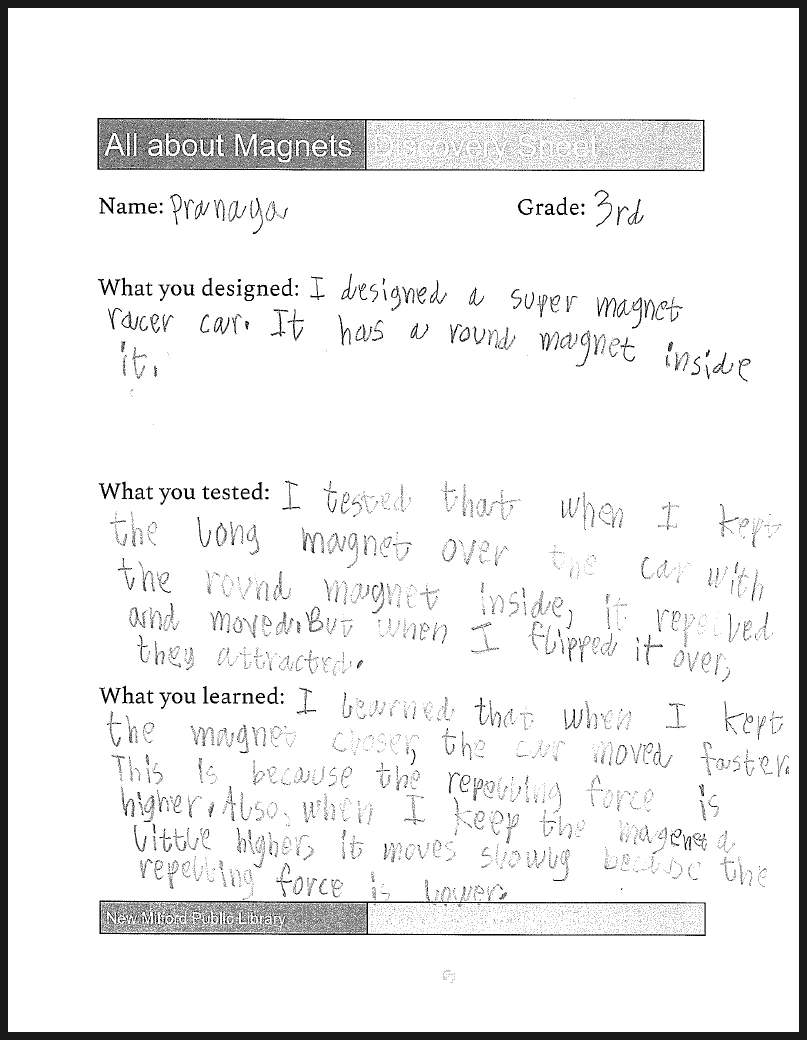 All about Magnets Discovery Sheet
Name: Pranaga Grade: 3rd
What you designed: I designed a super magnet
racer car. It has a round magnet inside
it.
What you tested: I tested that when I kept
the long magnet over the car with
the round magnet inside, it repelled
and moved. But when I flipped it over,
they attracted.
What you learned: I learned that when I kept
the magnet closer, the car moved faster.
This is because the repelling force is
higher. Also, when I keep the magenet a
little higher, it moves slowly becuse the
repelling force is lower.
New Milford Public Library